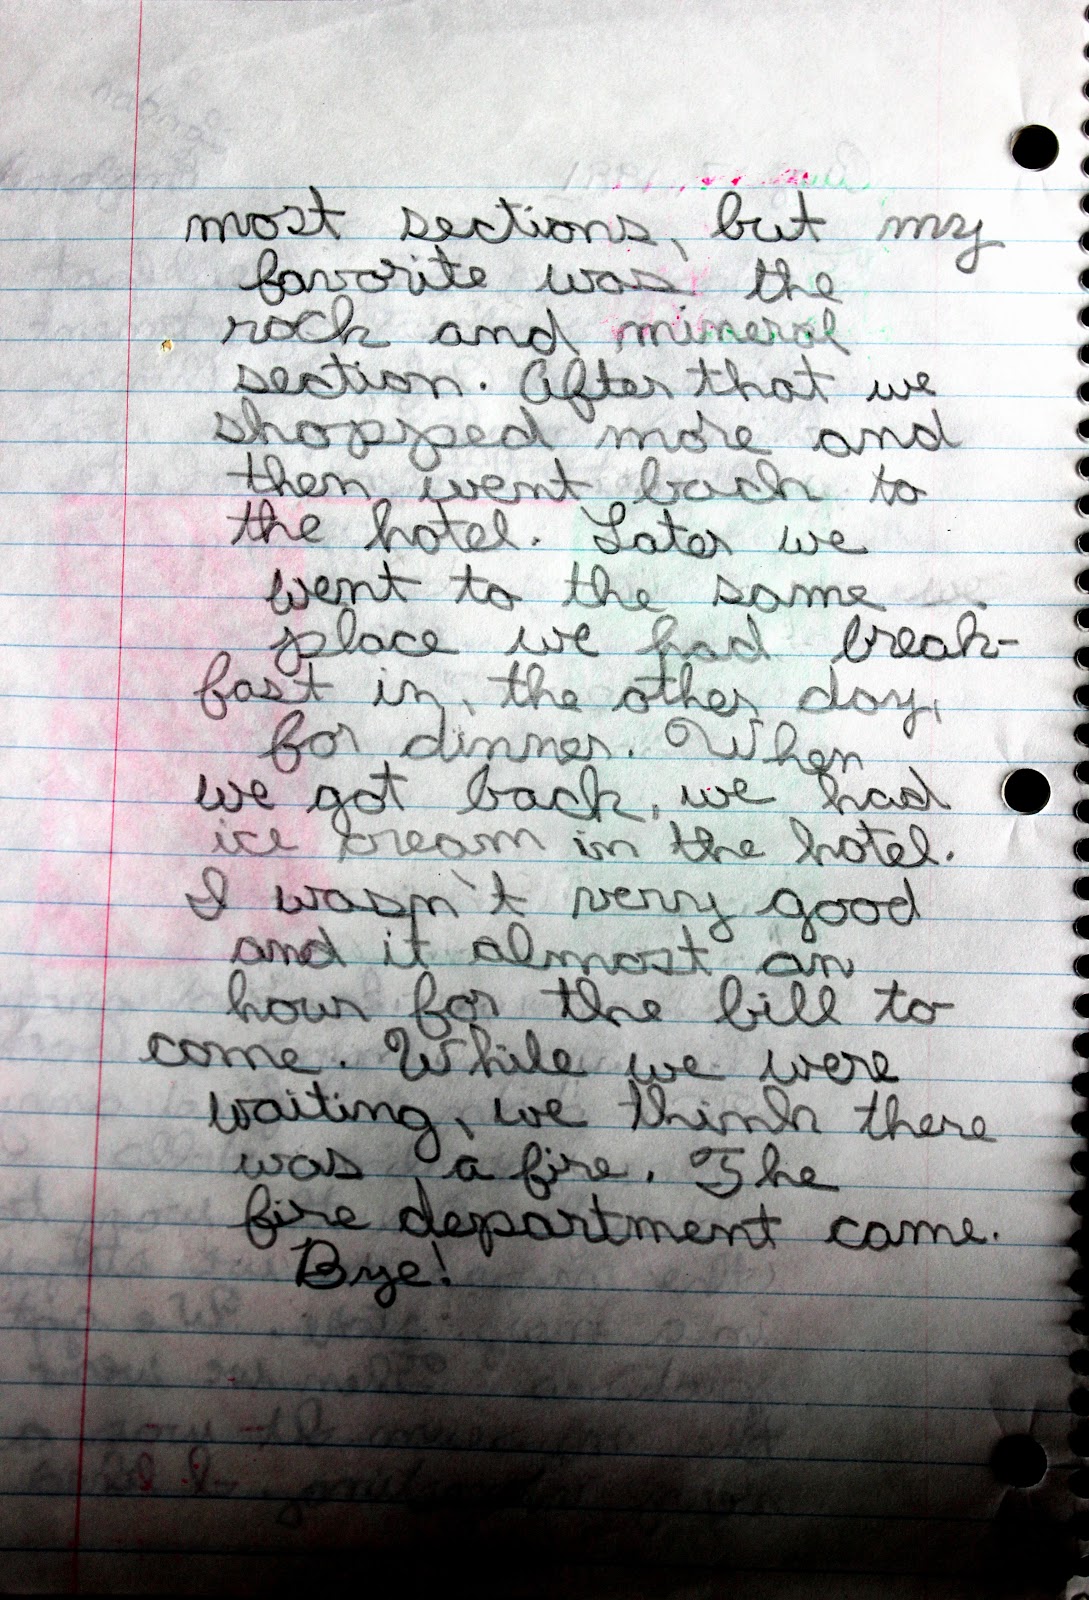 most sections, but my
favorite was the
rock and mineral
section. After that we
shopped more and
then went back to
the hotel. Later we
went to the same
place we had break-
fast in, the other day,
for dinner. When
we got back, we had
ice cream in the hotel.
I wasn't very good
and it almost an
hour for the bill to
come. While we were
waiting, we think there
was a fire. The
fire department came.
Bye!